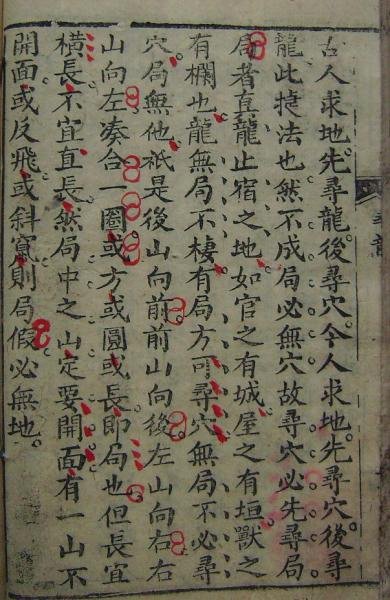 古人求地先尋龍後尋穴今人求地先尋穴後尋
龍此捷法也然不成局必無穴故尋穴必先尋局
局者真龍止宿之地如官之有城屋之有垣獸之
有欄也龍無局不棲有局方可尋穴無局不必尋
穴局無他祇是後山向前前山向後左山向右右
山向左湊合一圈或方或圓或長即局也但長宜
橫長不宜直長然局中之山定要開面有一山不
開面或反飛或斜竄則局假必無地